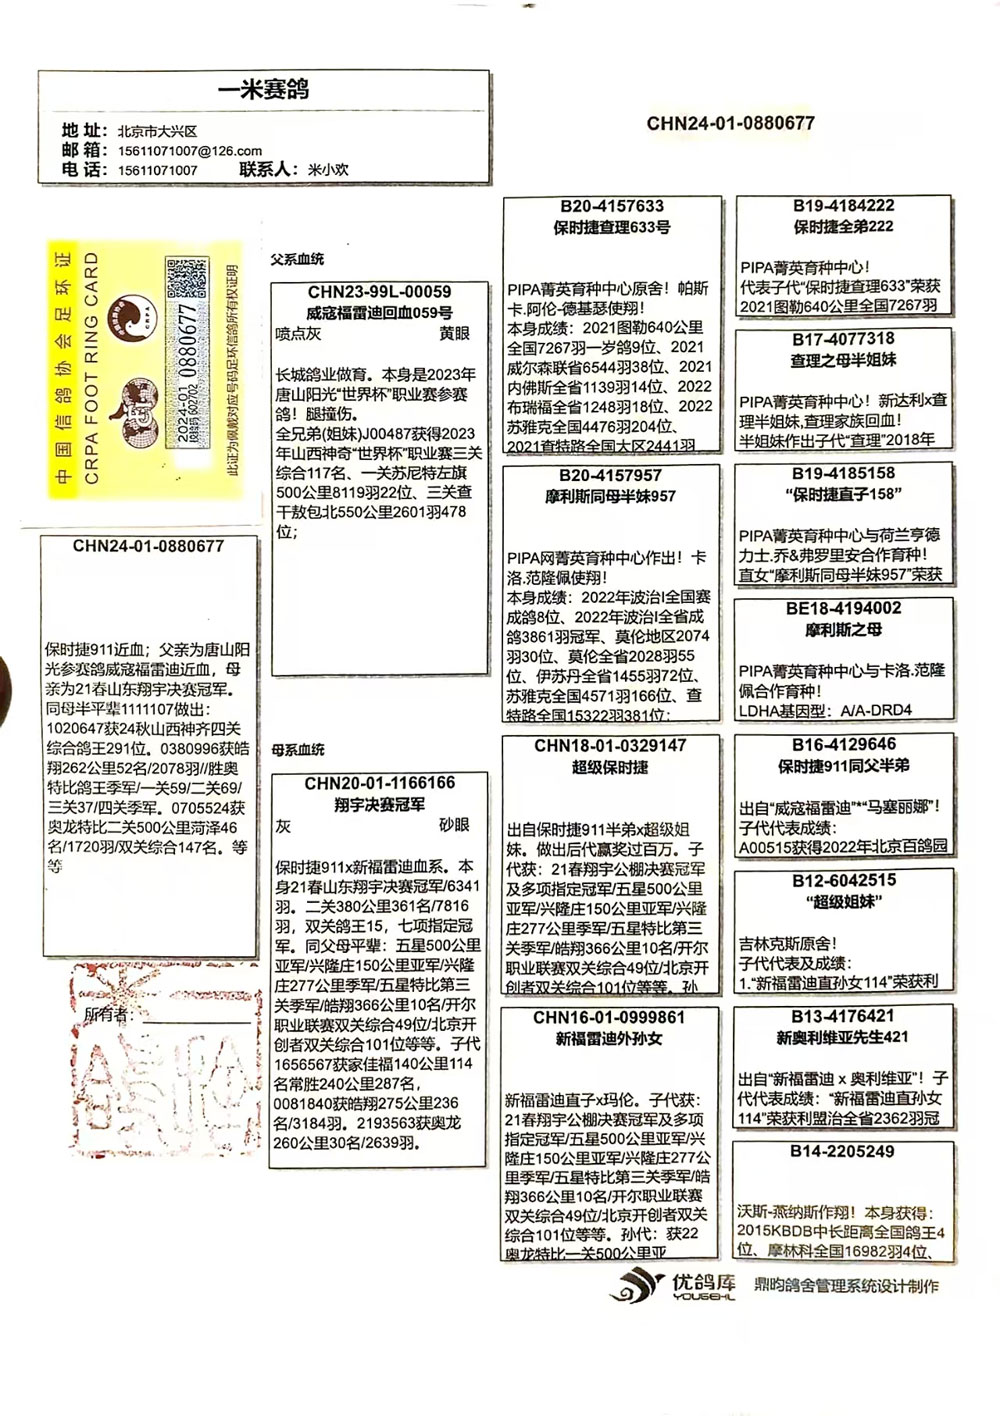 一米赛鸽
地 址：北京市大兴区
邮 箱：15611071007@126.com
电 话：15611071007 联系人：米小欢
CHN24-01-0880677
中国信鸽协会足环证
CRPA FOOT RING CARD
CRPA
2024-01 0880677
此证为佩戴对应号码足环信鸽所有权证明
CHN24-01-0880677
保时捷911近血；父亲为唐山阳
光参赛鸽威寇福雷迪近血，母
亲为21春山东翔宇决赛冠军。
同母半平辈1111107做出：
1020647获24秋山西神齐四关
综合鸽王291位。0380996获皓
翔262公里52名/2078羽//胜奥
特比鸽王季军/一关59/二关69/
三关37/四关季军。0705524获
奥龙特比二关500公里菏泽46
名/1720羽/双关综合147名。等
等
所有者：
父系血统
CHN23-99L-00059
威寇福雷迪回血059号
喷点灰 黄眼
长城鸽业做育。本身是2023年
唐山阳光“世界杯”职业赛参赛
鸽！腿撞伤。
全兄弟(姐妹)J00487获得2023
年山西神奇“世界杯”职业赛三关
综合117名、一关苏尼特左旗
500公里8119羽22位、三关查
干敖包北550公里2601羽478
位；
母系血统
CHN20-01-1166166
翔宇决赛冠军
灰 砂眼
保时捷911x新福雷迪血系。本
身21春山东翔宇决赛冠军/6341
羽。二关380公里361名/7816
羽，双关鸽王15，七项指定冠
军。同父母平辈：五星500公里
亚军/兴隆庄150公里亚军/兴隆
庄277公里季军/五星特比第三
关季军/皓翔366公里10名/开尔
职业联赛双关综合49位/北京开
创者双关综合101位等等。子代
1656567获家佳福140公里114
名常胜240公里287名，
0081840获皓翔275公里236
名/3184羽。2193563获奥龙
260公里30名/2639羽。
B20-4157633
保时捷查理633号
PIPA菁英育种中心原舍！帕斯
卡.阿伦-德基瑟使翔！
本身成绩：2021图勒640公里
全国7267羽一岁鸽9位、2021
威尔森联省6544羽38位、2021
内佛斯全省1139羽14位、2022
布瑞福全省1248羽18位、2022
苏雅克全国4476羽204位、
2021查特路全国大区2441羽
B20-4157957
摩利斯同母半妹957
PIPA网菁英育种中心作出！卡
洛.范隆佩使翔！
本身成绩：2022年波治I全国赛
成鸽8位、2022年波治I全省成
鸽3861羽冠军、莫伦地区2074
羽30位、莫伦全省2028羽55
位、伊苏丹全省1455羽72位、
苏雅克全国4571羽166位、查
特路全国15322羽381位；
CHN18-01-0329147
超级保时捷
出自保时捷911半弟x超级姐
妹。做出后代赢奖过百万。子
代获：21春翔宇公棚决赛冠军
及多项指定冠军/五星500公里
亚军/兴隆庄150公里亚军/兴隆
庄277公里季军/五星特比第三
关季军/皓翔366公里10名/开尔
职业联赛双关综合49位/北京开
创者双关综合101位等等。孙
CHN16-01-0999861
新福雷迪外孙女
新福雷迪直子x玛伦。子代获：
21春翔宇公棚决赛冠军及多项
指定冠军/五星500公里亚军/兴
隆庄150公里亚军/兴隆庄277公
里季军/五星特比第三关季军/皓
翔366公里10名/开尔职业联赛
双关综合49位/北京开创者双关
综合101位等等。孙代：获22
奥龙特比一关500公里亚
B19-4184222
保时捷全弟222
PIPA菁英育种中心！
代表子代“保时捷查理633”荣获
2021图勒640公里全国7267羽
B17-4077318
查理之母半姐妹
PIPA菁英育种中心！新达利x查
理半姐妹,查理家族回血！
半姐妹作出子代“查理”2018年
B19-4185158
“保时捷直子158”
PIPA菁英育种中心与荷兰亨德
力士.乔&弗罗里安合作育种！
直女“摩利斯同母半妹957”荣获
BE18-4194002
摩利斯之母
PIPA菁英育种中心与卡洛.范隆
佩合作育种！
LDHA基因型：A/A-DRD4
B16-4129646
保时捷911同父半弟
出自“威寇福雷迪”*“马塞丽娜”！
子代代表成绩：
A00515获得2022年北京百鸽园
B12-6042515
“超级姐妹”
吉林克斯原舍！
子代代表及成绩：
1.“新福雷迪直孙女114”荣获利
B13-4176421
新奥利维亚先生421
出自“新福雷迪 x 奥利维亚”！子
代代表成绩：“新福雷迪直孙女
114”荣获利盟治全省2362羽冠
B14-2205249
沃斯-燕纳斯作翔！本身获得：
2015KBDB中长距离全国鸽王4
位、摩林科全国16982羽4位、
优鸽库
YOUGEHL
鼎昀鸽舍管理系统设计制作